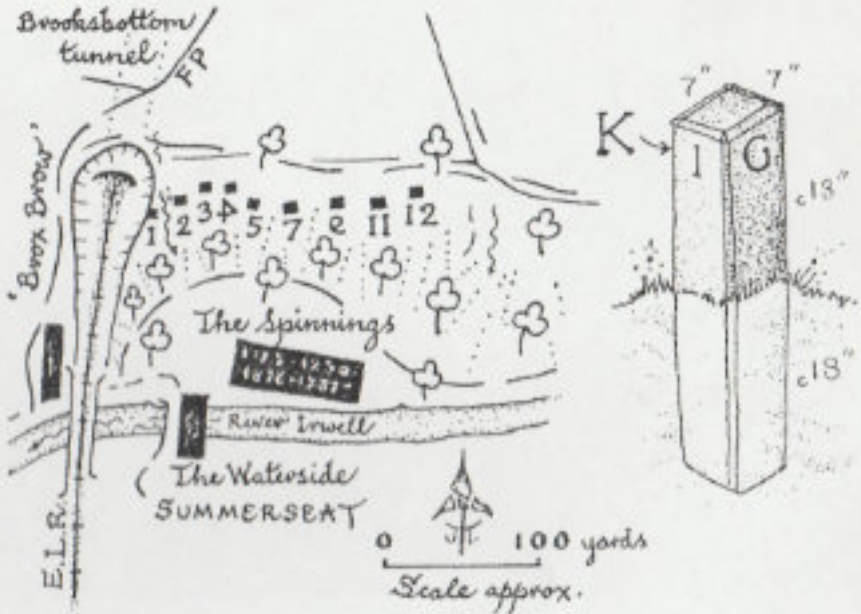 Brooksbottom
tunnel
FP
'Brox Brow'
1 2 3 4 5 7 e 11 12
The Spinnings
River Irwell
The Waterside
SUMMERSEAT
E.L.R.
0 100 yards
Scale approx.
7" 7"
K
I G
c18"
c18"